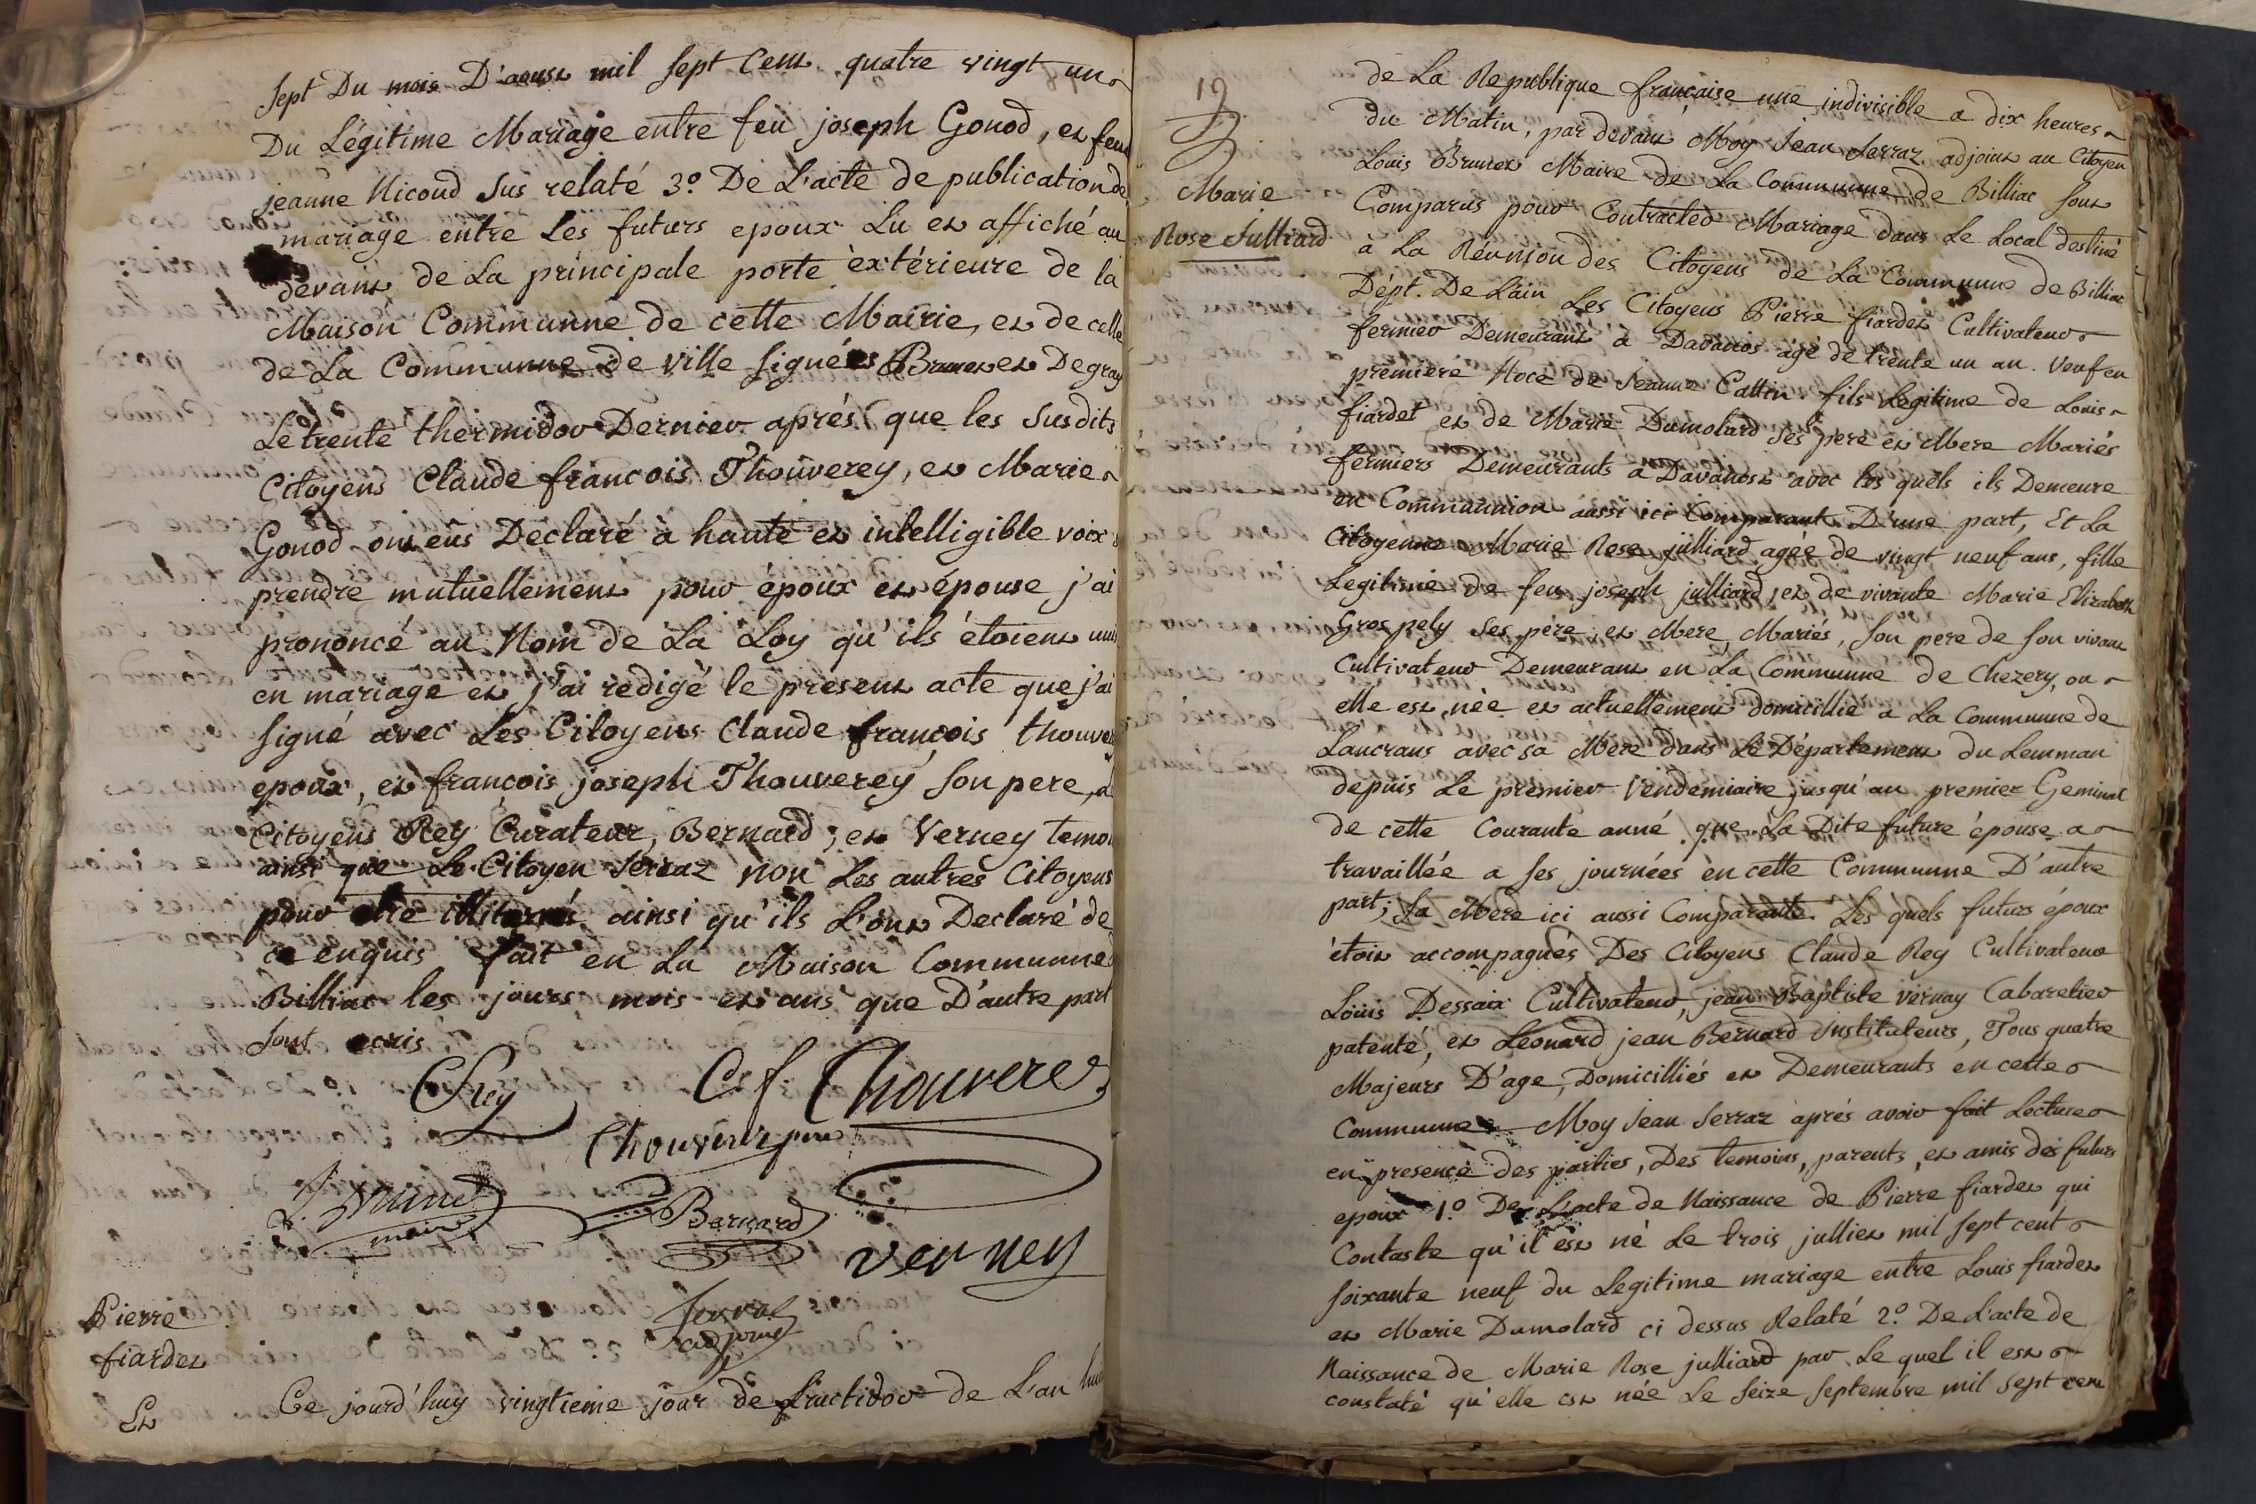 sept Du mois D'aoust mil sept Cent quatre vingt un
Du Légitime Mariage entre feu joseph Gonod, et feue
jeanne Nicoud sus relaté 3.º De L'acte de publication de
mariage entre Les futurs epoux Lu et affiché au
devant de La principale porte èxtérieure de la
Maison Communne de cette Mairie, et de celle
de La Communne de ville signées Brunet et Degray
Le trente thermidor Dernier aprés que les susdits
Citoyens Claude françois Thouverey, et Marie
Gonod ont eus Declaré à haute et intelligible voix
prendre mutuellement pour époux et épouse j'ai
prononcé au Nom de La Loy qu'ils étoient unis
en mariage et j'ai redigé le present acte que j'ai
signé avec Les Citoyens Claude françois thouve
epoux, et françois joseph Thouverey son pere,
Citoyens Rey Curateur, Bernard, et Verney temo
ainsi que Le Citoyen Serraz non Les autres Citoyens
pour être illiterés ainsi qu'ils L'ont Declaré de
ce enquis fait en La Maison Communne
Billiat les jours mois et ans que D'autre part
sont ecris
CRey
C f Thouverey
Thouverey pere
L. Brunet
maire
Bernard
verney
Serraz
adjoint
Pierre
fiardet
Et
Ce jourd'huy vingtieme jour de fructidor de L'an huit
19
Marie
Rose Julliard
de La Republique française une indivisible a dix heures
du Matin, par devant Moy Jean Serraz adjoint au Citoyen
Louis Brunet Maire de La Communne de Billiat sont
Comparus pour Contracter Mariage dans Le Local destiné
à La Réunion des Citoyens de La Communne de Billiat
Dépt. De L'ain Les Citoyens Pierre fiardet Cultivateur
fermier Demeurant à Davanos agé de trente un an. Veuf en
premiere Noce de Jeanne Cattin fils Legitime de Louis
fiardet et de Marie Dumolard ses pere et Mere Mariés
fermiers Demeurants a Davanost avec les quels ils Demeure
en Communnion aussi ici Comparant D'une part, Et La
Citoyenne Marie Rose julliard agée de vingt neuf ans, fille
Legitime de feu joseph julliard, et de vivante Marie Elizabeth
Grospely ses pere et Mere Mariés, son pere de son vivant
Cultivateur Demeurant en La Communne de Chezery, ou
elle est née et actuellement domicillié a La Communne de
Lancrans avec sa Mere dans Le Département du Lemman
depuis Le premier Vendemiaire jusqu'au premier Geminal
de cette Courante anné que La Dite future épouse a
travaillée a ses journées en cette Communne D'autre
part, Sa Mere ici aussi Comparante Les quels futurs époux
étoit accompagnés Des Citoyens Claude Rey Cultivateur
Louis Dessaix Cultivateur, jean Baptiste vernay Cabaretier
patenté, et Léonard jean Bernard Instituteurs, Tous quatre
Majeurs D'age, Domicilliés et Demeurants en cette
Communne Moy Jean Serraz aprés avoir fait Lecture
en presence des parties, Des temoins, parents, et amis des futurs
epoux 1.º De L'acte de Naissance de Pierre fiardet qui
Contaste qu'il est né Le trois julliet mil sept cent
soixante neuf du Legitime mariage entre Louis fiardet
et Marie Dumolard ci dessus Relaté 2.º De L'acte de
Naissance de Marie Rose julliard par Le quel il est
constaté qu'elle est née Le seize septembre mil sept cent